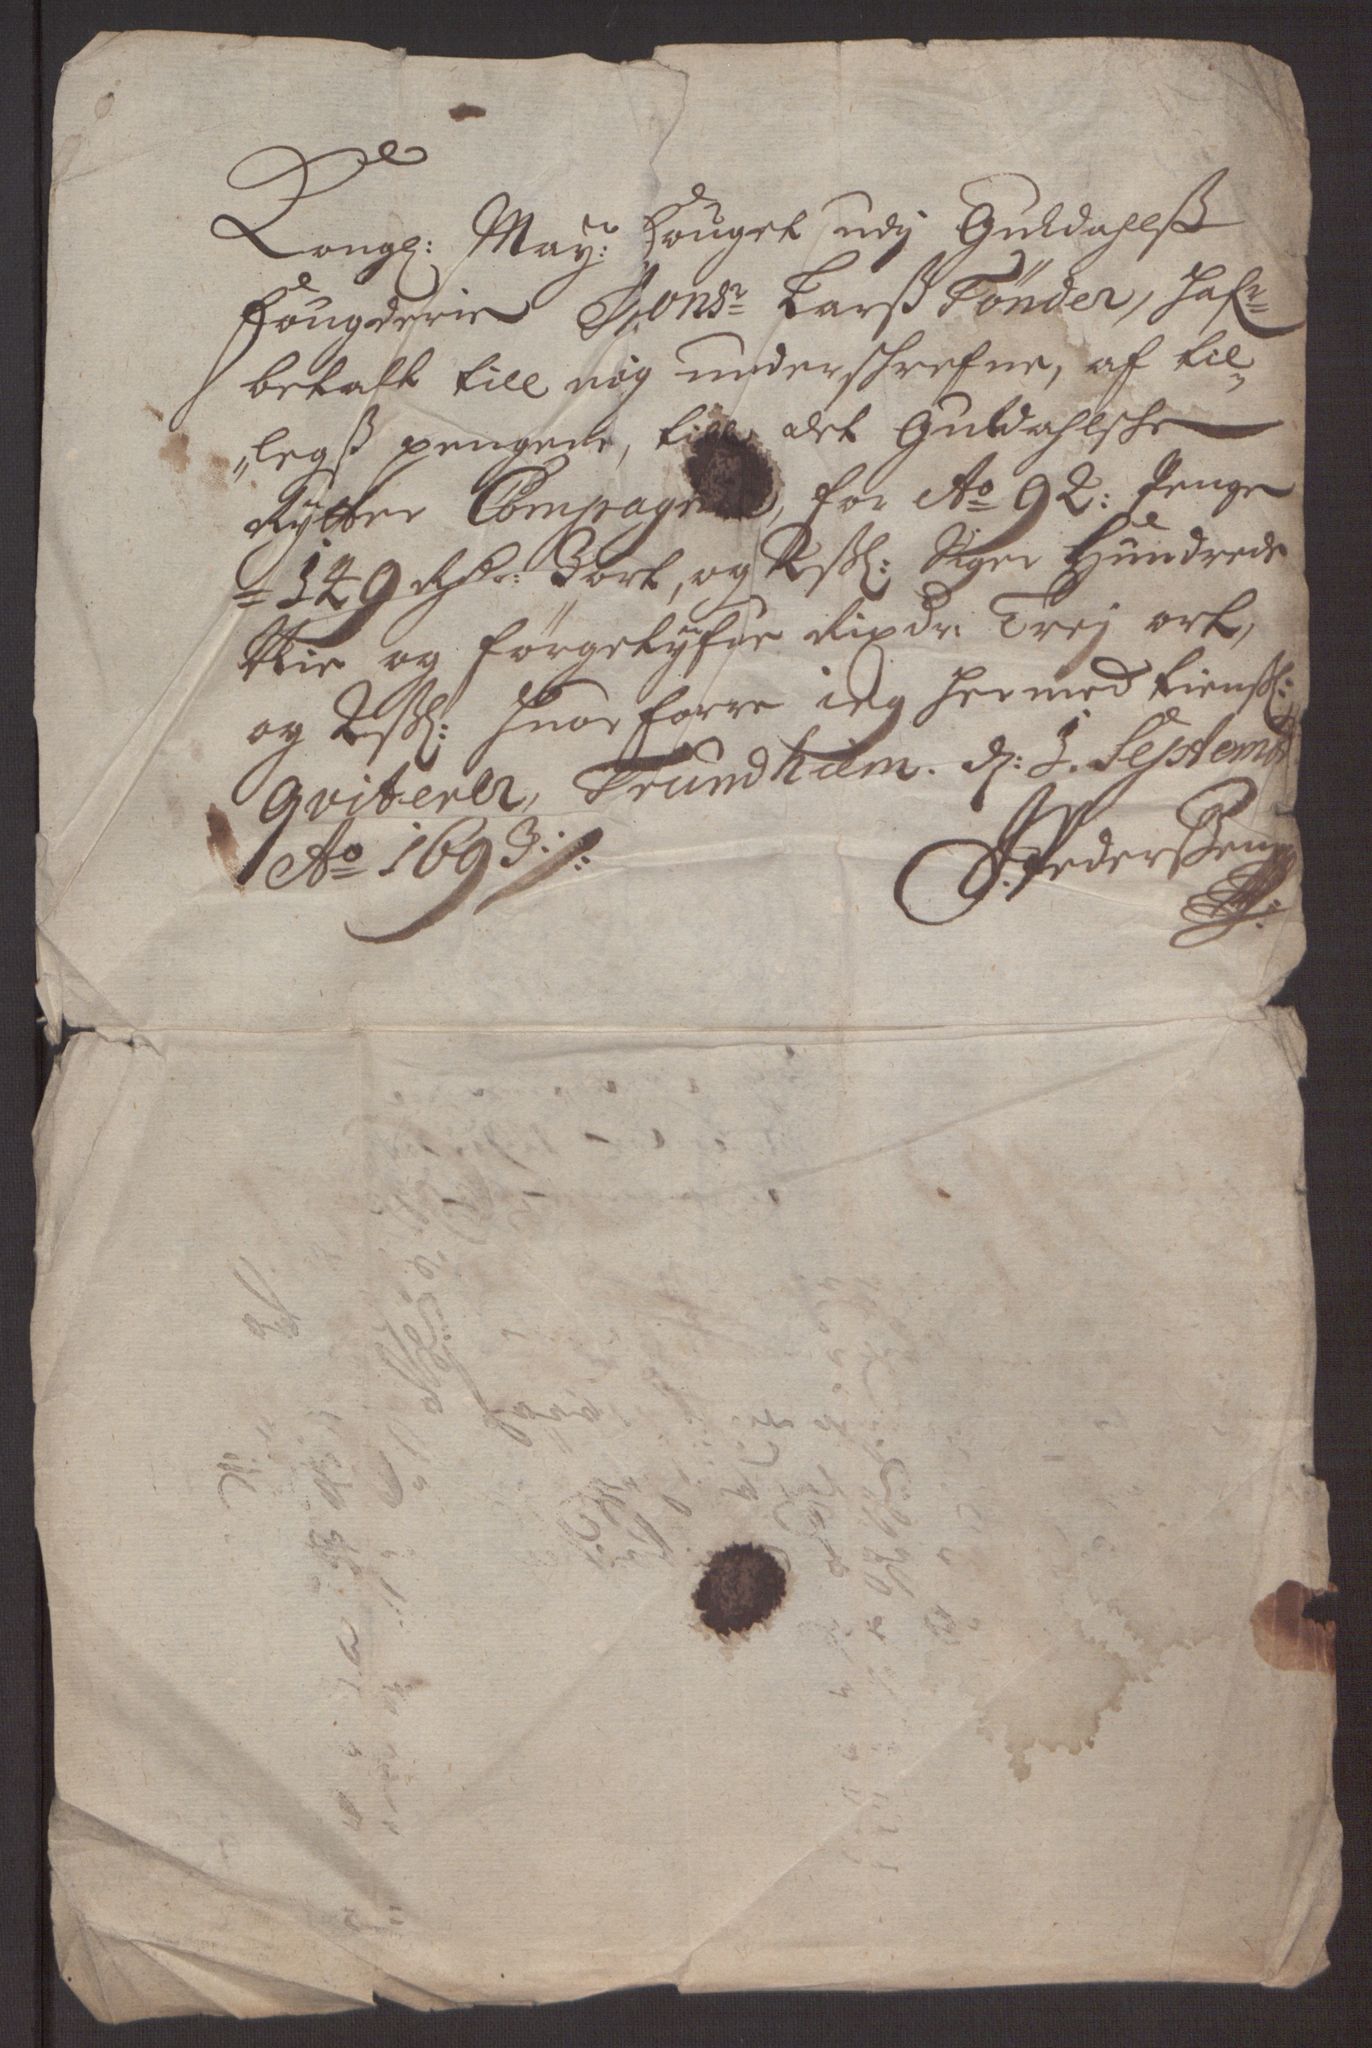 Kongl: May: fouget udj Guldahlß
fougderie Mons: Larß Tönder, hafr
betalt till mig underschrefne, af til
legß pengene, till det Guldahlsche
Rytter Compagnie, for Ao 92: Penge
149 Rdr: 3 ort, og 2 ßl: Siger Hundrede
Nie og förgetyfve Rixdr: Trej ort,
og 2 ßl: huor forre ieg hermed tienstl:
qviterer, Trundhiem. d: 1. Septemb
Ao 1693:
Pederßen